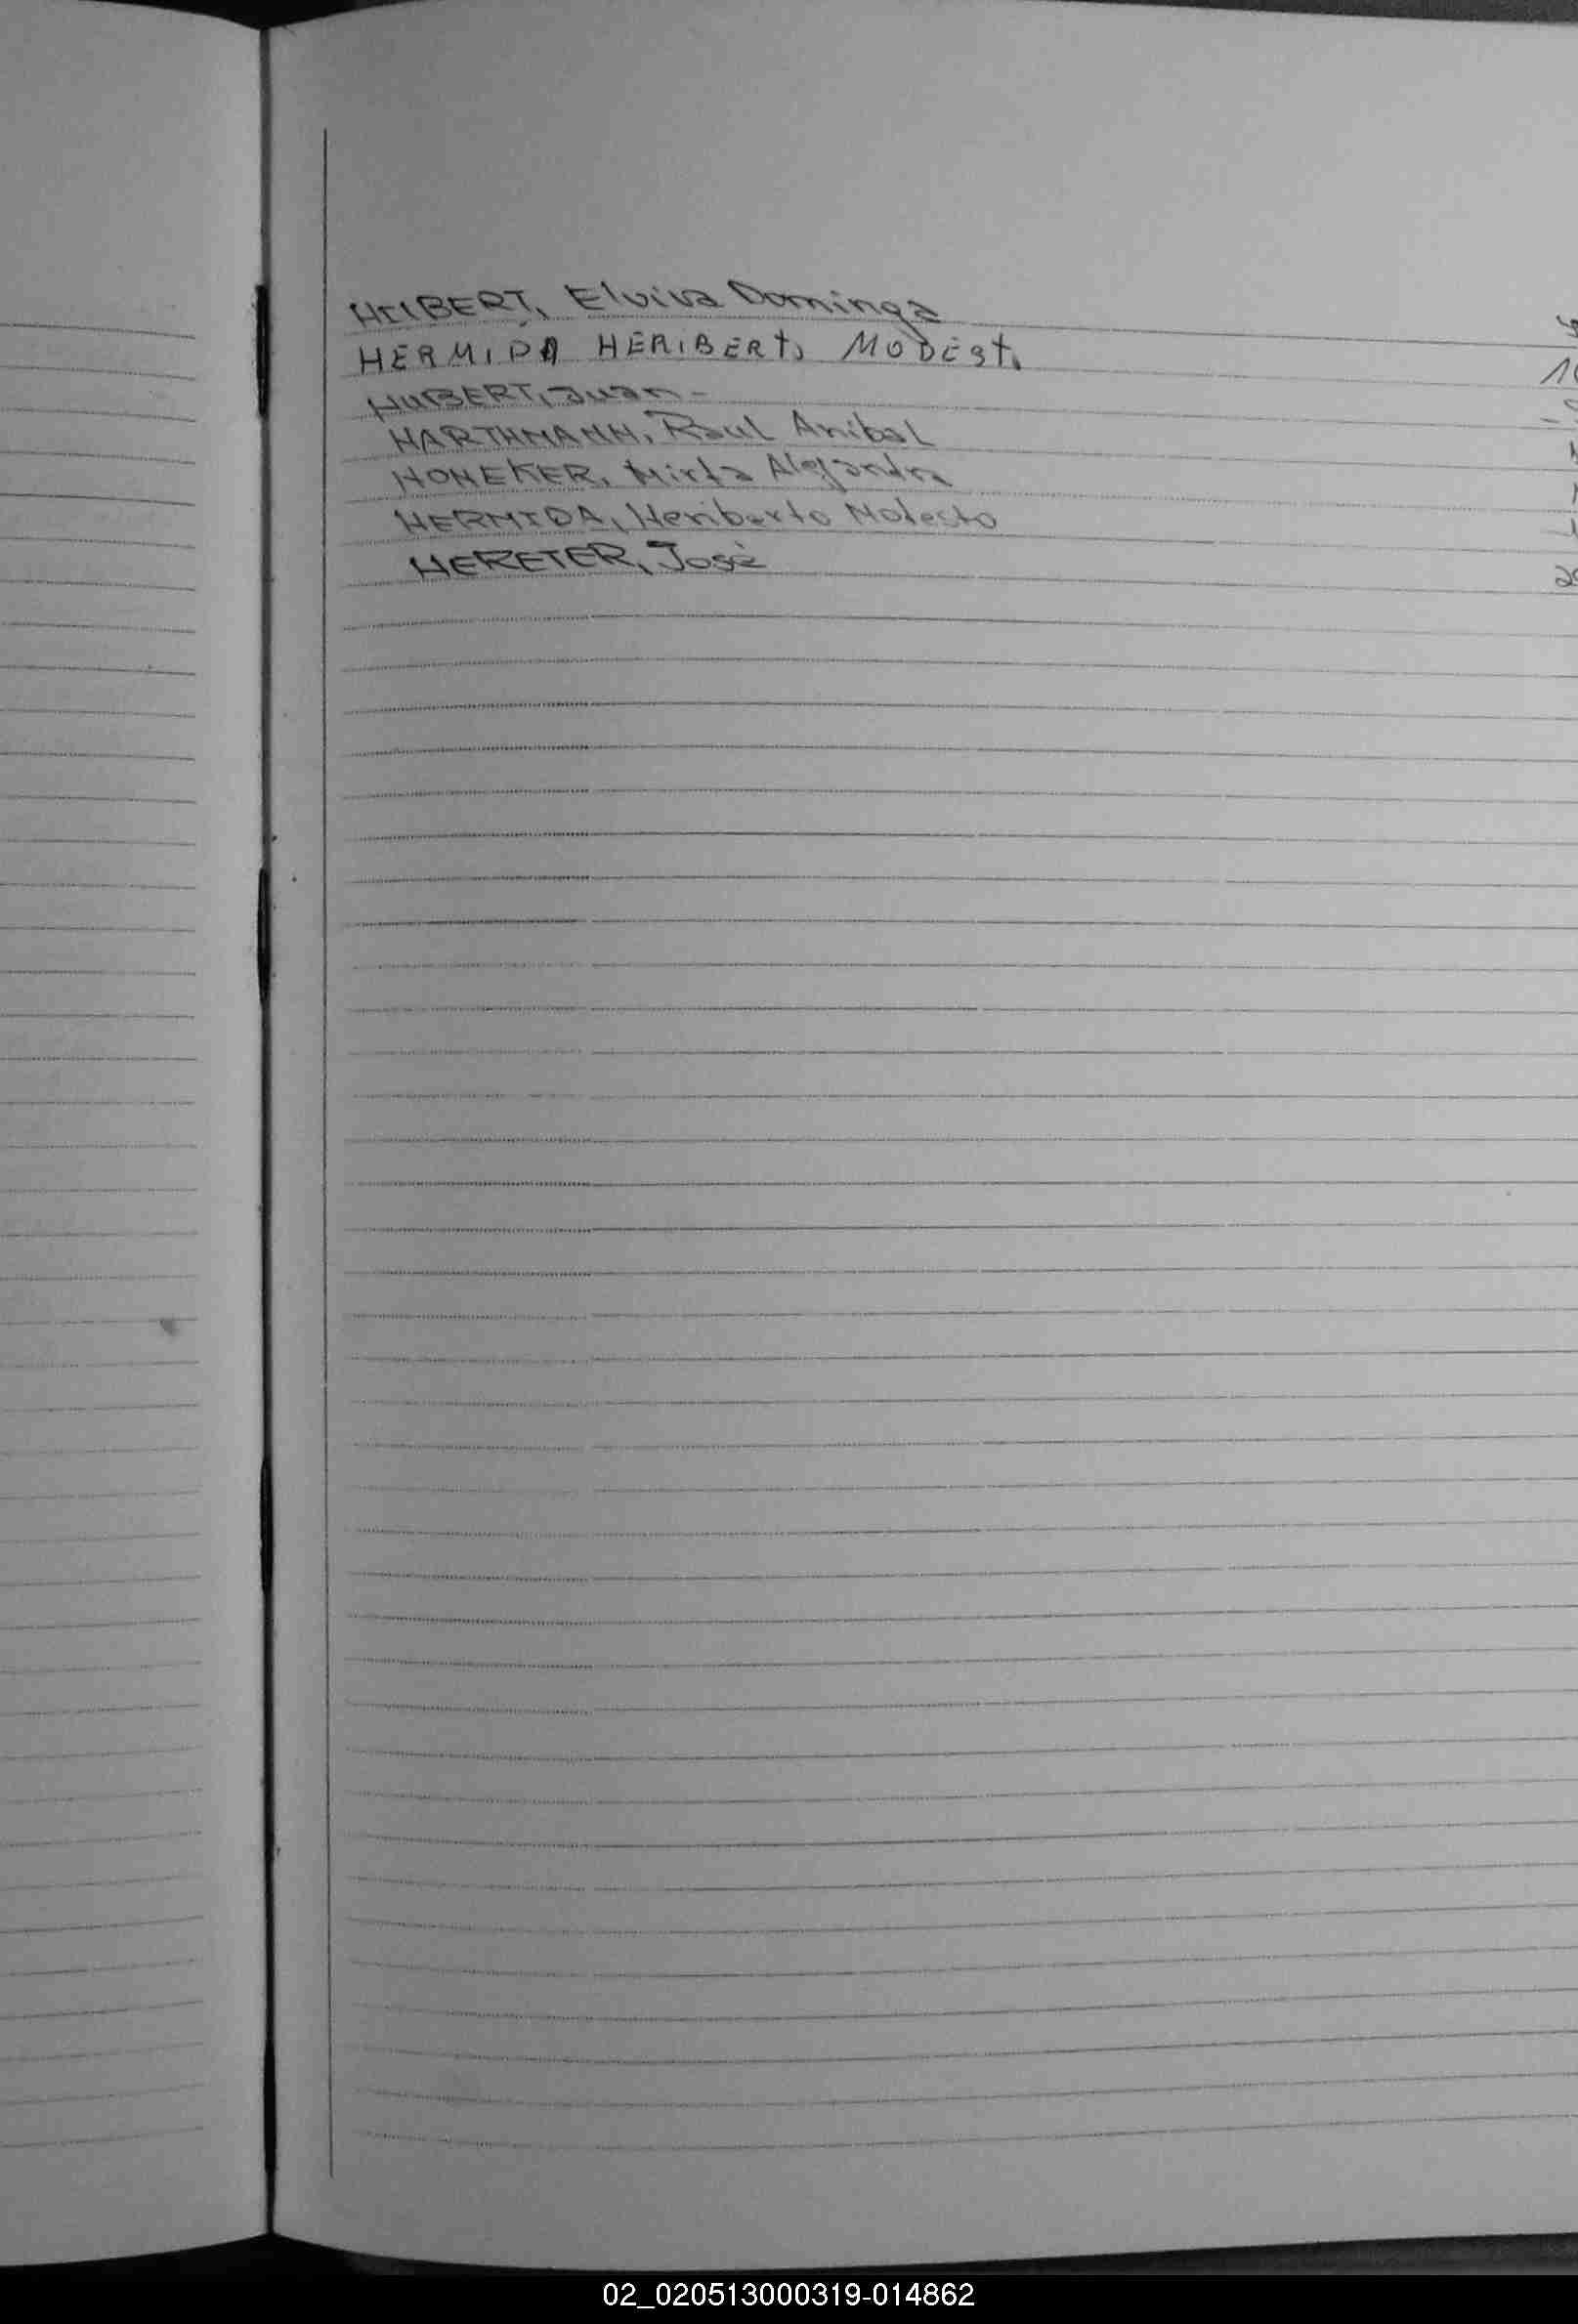 HILBERT, Elvira Dominga
HERMIDA HERIBERTO MODESTO
HUBERT, Juan -
HARTHMANN, Raul Anibal
HONEKER, Mirta Alejandra
HERMIDA, Heriberto Modesto
HERETER, José
02_020513000319-014862